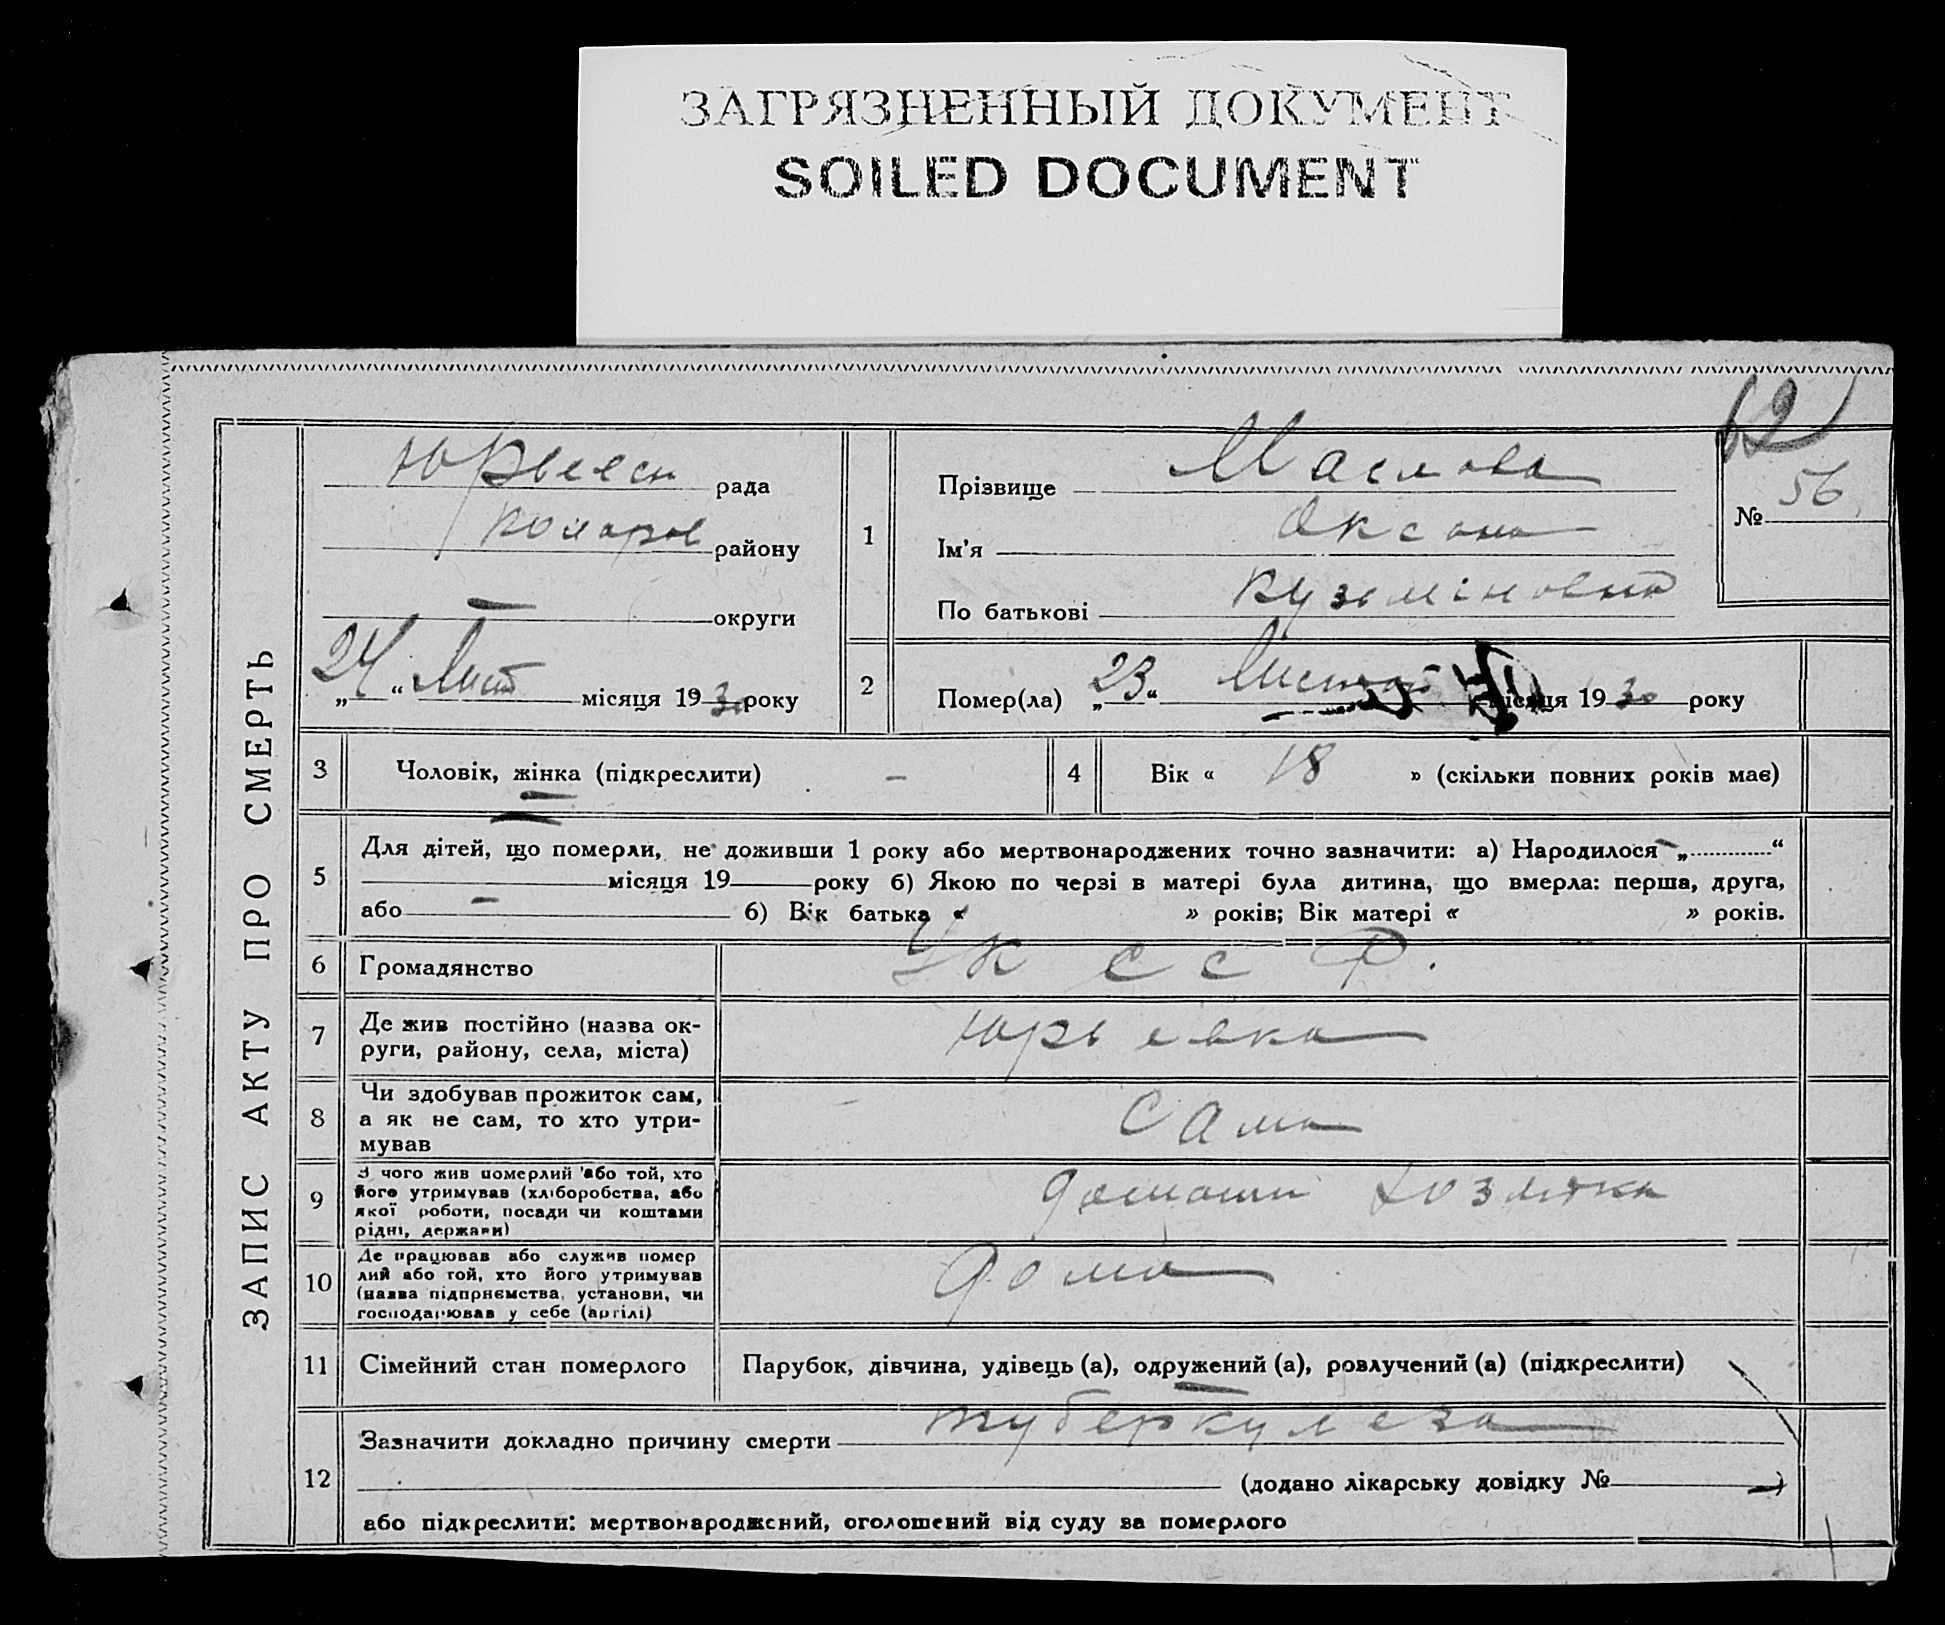 ЗАГРЯЗНЕННЫЙ ДОКУМЕНТ
SOILED DOCUMENT
62
ЗАПИС АКТУ ПРО СМЕРТЬ
рада
району
— округи
„24“ Лист місяця 1930 року
1
Прізвище Маслова
Ім'я Оксана
По батькові Кузьміновна
№ 56
2
Помер(ла) „23“ місяця 1930 року
3 Чоловік, жінка (підкреслити) —
4 Вік « 18 » (скільки повних років має)
5 Для дітей, що померли, не доживши 1 року або мертвонароджених точно зазначити: а) Народилося „............“
місяця 19 року б) Якою по черзі в матері була дитина, що вмерла: перша, друга,
або — б) Вік батька « » років; Вік матері « » років.
6 Громадянство УК С С Р.
7 Де жив постійно (назва ок-
руги, району, села, міста) Юрьевка
8 Чи здобував прожиток сам,
а як не сам, то хто утри-
мував Сама
9 З чого жив померлий або той, хто
його утримував (хліборобства, або
якої роботи, посади чи коштами
рідні, держави)
10 Де працював або служив помер
лий або той, хто його утримував
(назва підприємства, установи, чи
господарював у себе (артілі) дома
11 Сімейний стан померлого Парубок, дівчина, удівець (а), одружений (а), розлучений (а) (підкреслити)
12 Зазначити докладно причину смерти туберкулеза
(додано лікарську довідку № )
або підкреслити: мертвонароджений, оголошений від суду за померлого